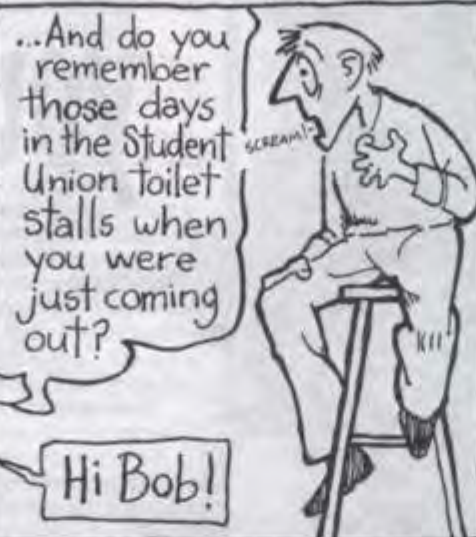 ...And do you
remember
those days
in the Student
Union toilet
stalls when
you were
just coming
out?
SCREAM!
Hi Bob!